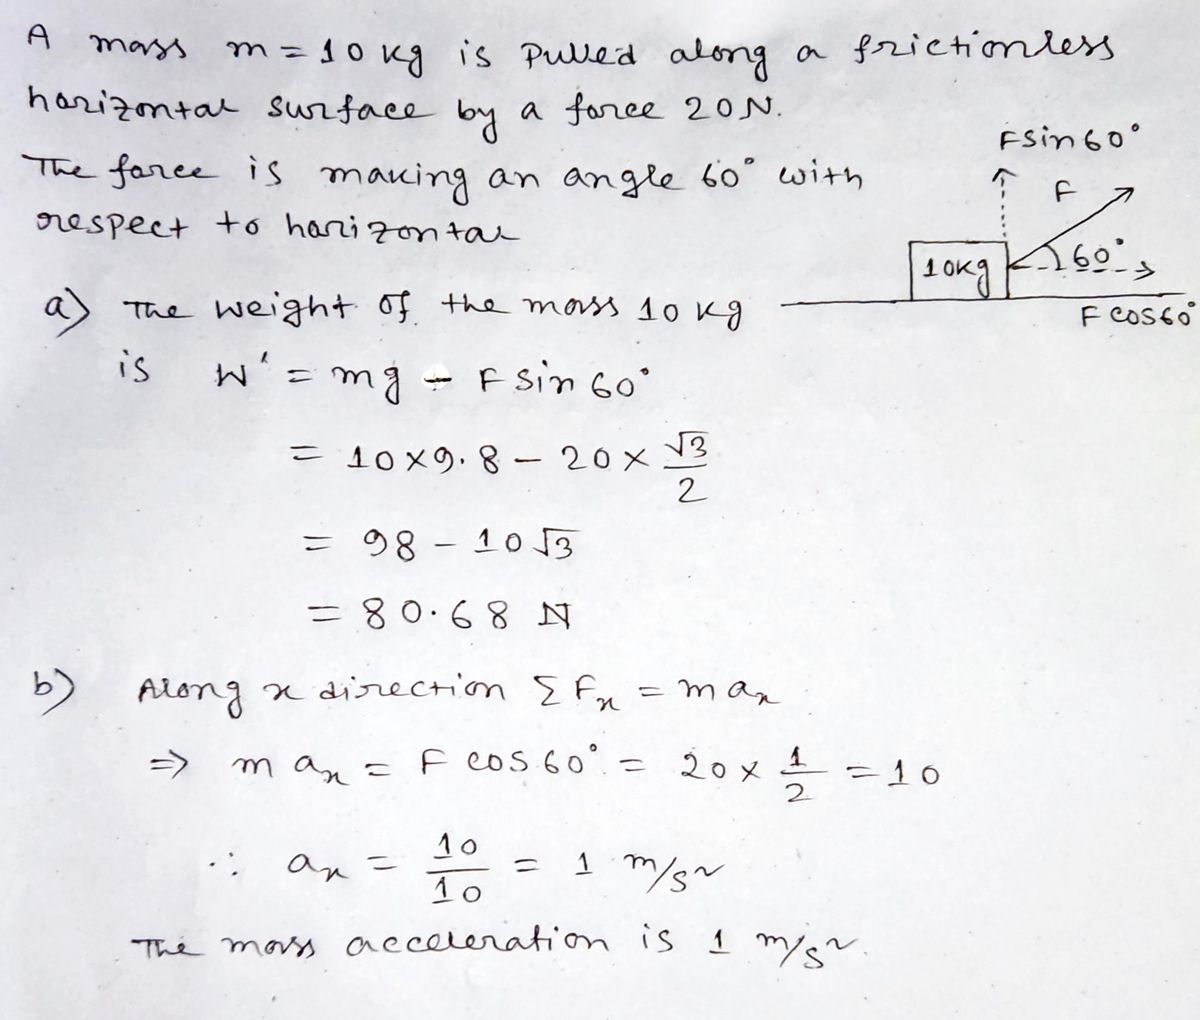 A mass m = 10 kg is pulled along a frictionless
horizontal surface by a force 20N.
The force is making an angle 60° with
respect to horizontal
F sin 60°
F
10kg
60°
F cos60°
a) The weight of the mass 10 kg
is W' = mg - F sin 60°
= 10×9.8 - 20 × √3/2
= 98 - 10√3
= 80.68 N
b) Along x direction Σ Fx = m ax
⇒ m ax = F cos 60° = 20 × 1/2 = 10
∴ ax = 10/10 = 1 m/s²
The mass acceleration is 1 m/s².